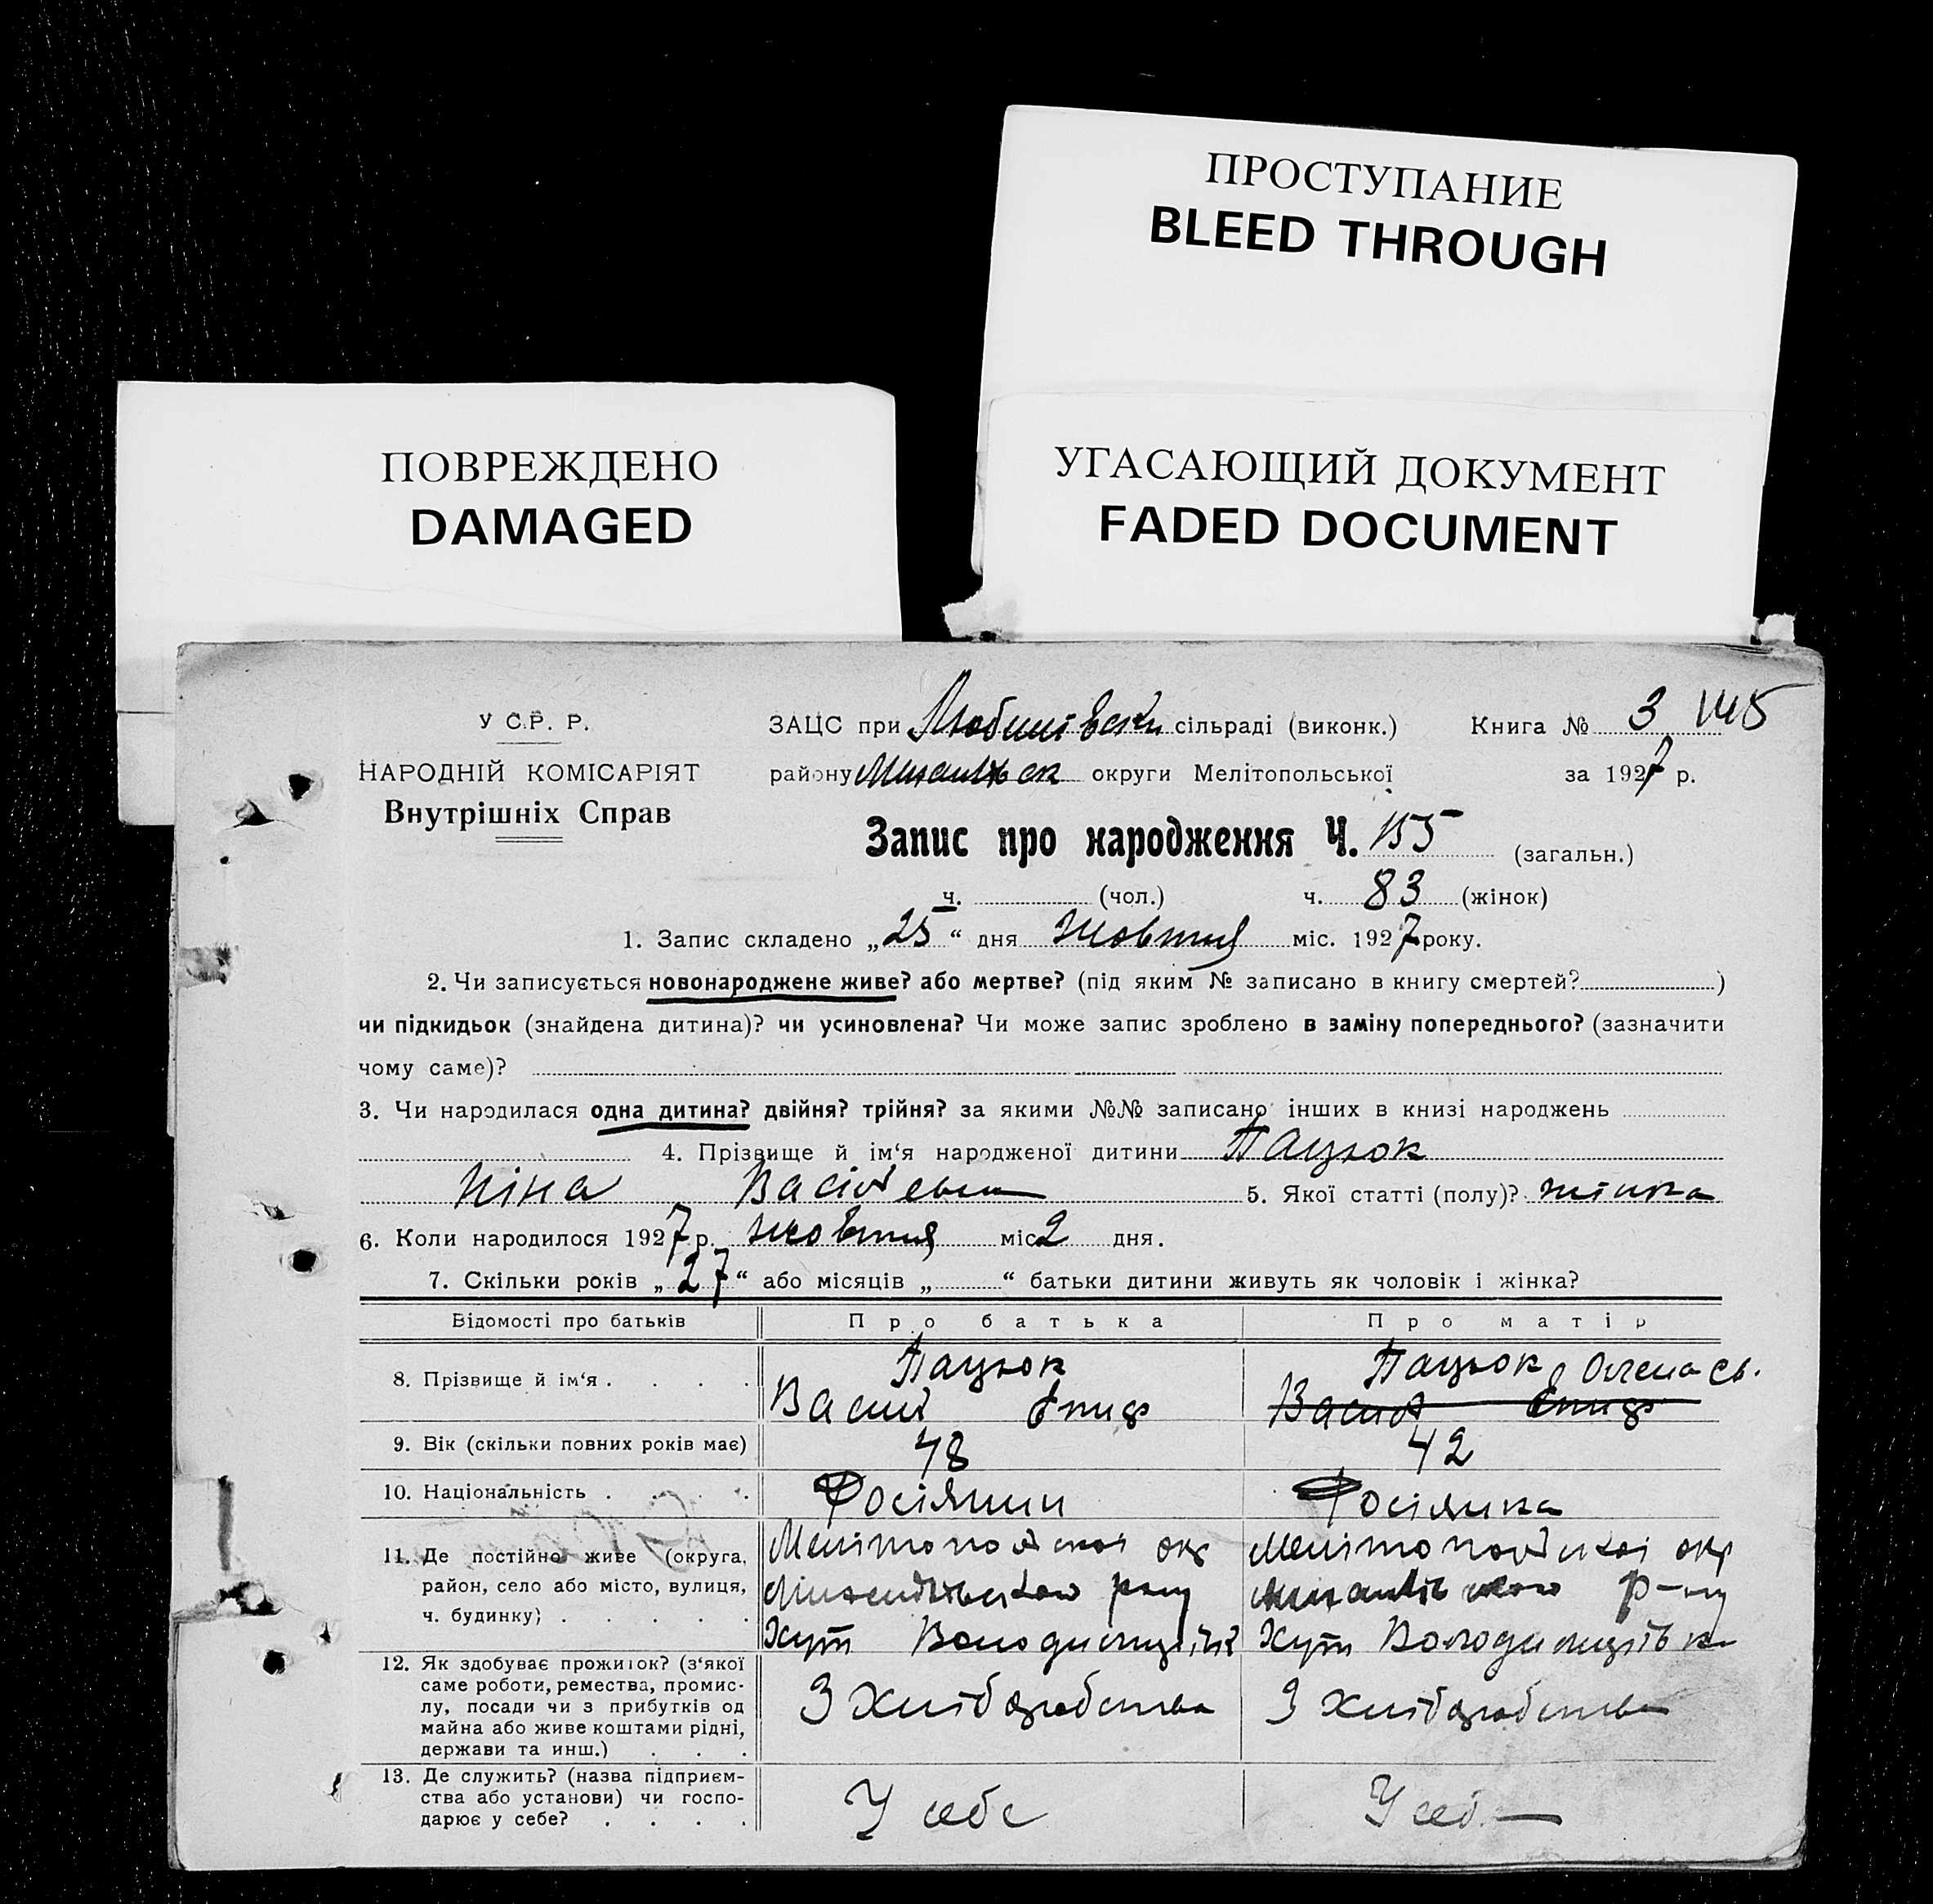 ПРОСТУПАНИЕ
BLEED THROUGH
ПОВРЕЖДЕНО
DAMAGED
УГАСАЮЩИЙ ДОКУМЕНТ
FADED DOCUMENT
У С.Р. Р.
НАРОДНІЙ КОМІСАРІЯТ
Внутрішніх Справ
ЗАЦС при сільраді (виконк.) Книга № 3
району округи Мелітопольської за 1927 р.
Запис про народження Ч. 155 (загальн.)
ч. (чол.) ч. 83 (жінок)
1. Запис складено „25“ дня Жовтня міс. 1927 року.
2. Чи записується новонароджене живе? або мертве? (під яким № записано в книгу смертей? )
чи підкидьок (знайдена дитина)? чи усиновлена? Чи може запис зроблено в заміну попереднього? (зазначити
чому саме)?
3. Чи народилася одна дитина? двійня? трійня? за якими №№ записано інших в книзі народжень
4. Прізвище й ім‘я народженої дитини Пацюк
Ніна Васілевна 5. Якої статті (полу)? жінка
6. Коли народилося 1927 р. Жовтня міс 2 дня.
7. Скільки років „27“ або місяців „ “ батьки дитини живуть як чоловік і жінка?
Відомості про батьків Про батька Про матір
8. Прізвище й ім‘я . . . . Пацюк Пацюк Олена Єв.
Васил Єпиф Васил Єпиф
9. Вік (скільки повних років має) 48 42
10. Національність . . . . Росіянин Росіянка
11. Де постійно живе (округа, Мелітопольскої окр Мелітопольскої окр
район, село або місто, вулиця, Михайлівського р-ну
ч. будинку) . . . . . Хут Хут Володимирівка
12. Як здобуває прожиток? (з‘якої
саме роботи, ремества, промис-
лу, посади чи з прибутків од З Хліборобства З Хліборобства
майна або живе коштами рідні,
держави та инш.) . . .
13. Де служить? (назва підприєм-
ства або установи) чи госпо- У себе У себ
дарює у себе? . . . .